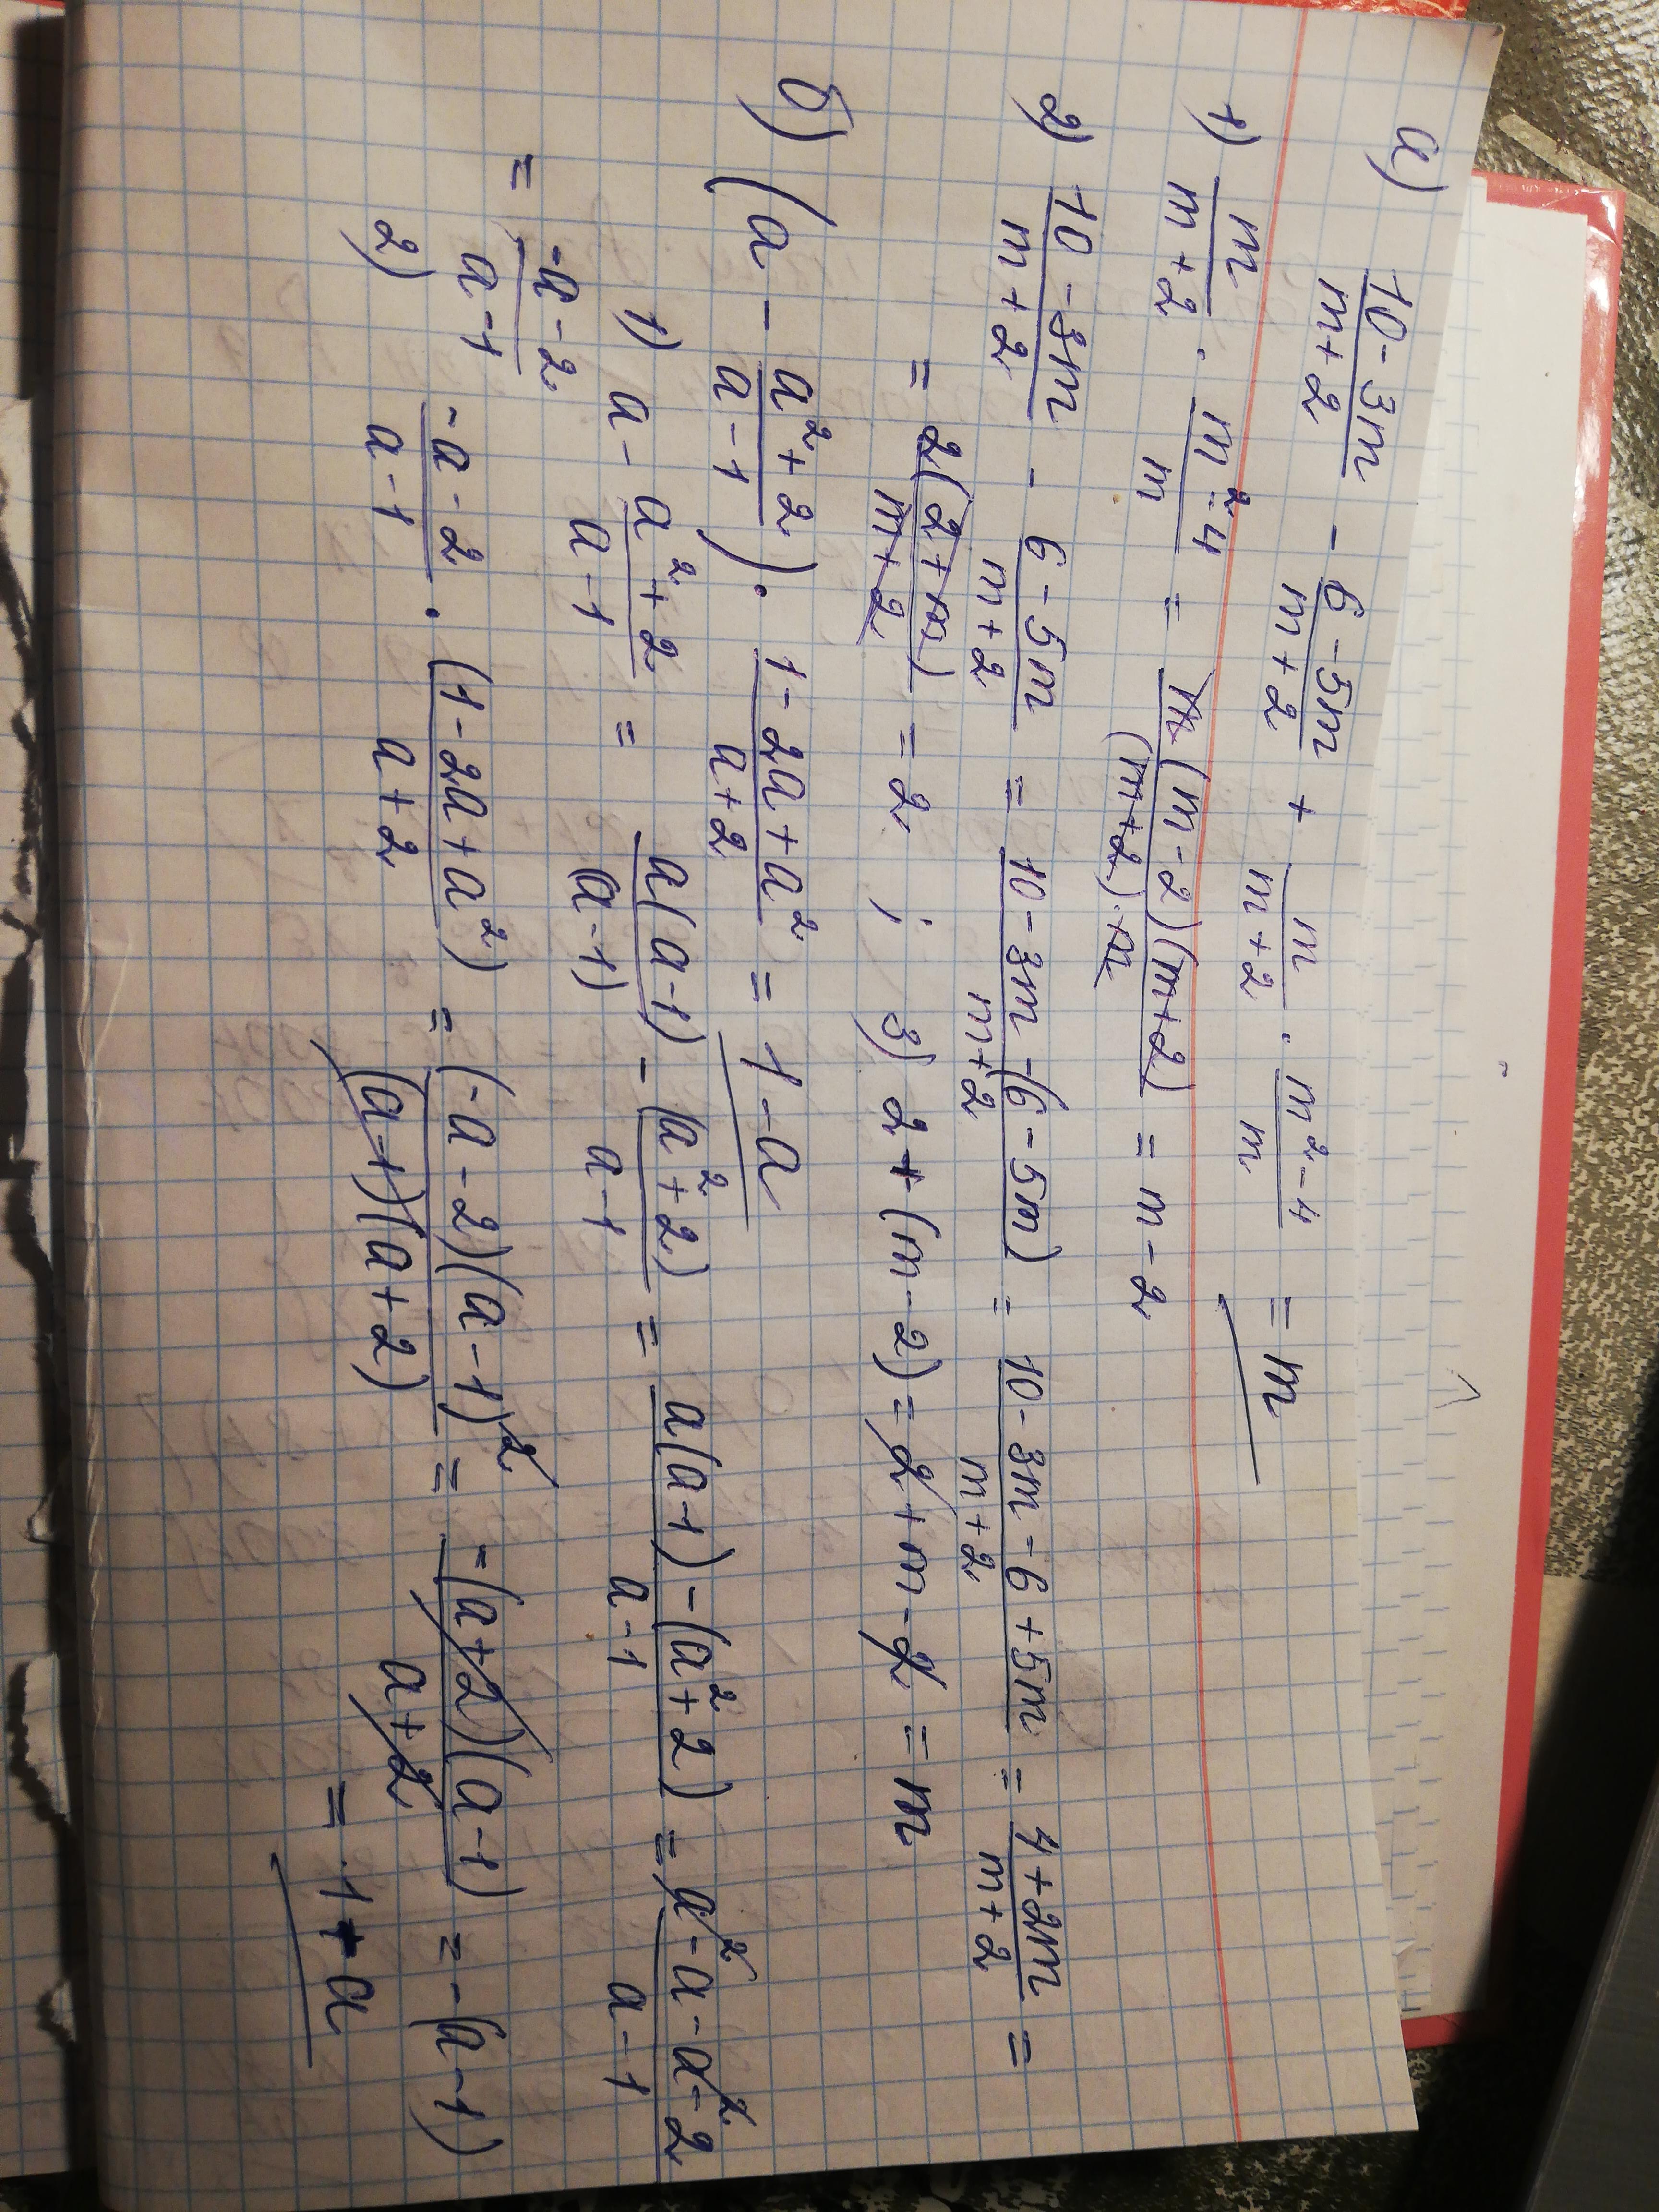 а) (10 - 3m)/(m + 2) - (6 - 5m)/(m + 2) + m/(m + 2) · (m² - 4)/m = m
1) m/(m + 2) · (m² - 4)/m = (m(m - 2)(m + 2))/((m + 2) · m) = m - 2
2) (10 - 3m)/(m + 2) - (6 - 5m)/(m + 2) = (10 - 3m - (6 - 5m))/(m + 2) = (10 - 3m - 6 + 5m)/(m + 2) = (4 + 2m)/(m + 2) =
= (2(2 + m))/(m + 2) = 2 ; 3) 2 + (m - 2) = 2 + m - 2 = m
б) (a - (a² + 2)/(a - 1)) · (1 - 2a + a²)/(a + 2) = 1 - a
1) a - (a² + 2)/(a - 1) = a(a - 1)/(a - 1) - (a² + 2)/(a - 1) = (a(a - 1) - (a² + 2))/(a - 1) = (a² - a - a² - 2)/(a - 1)
= (-a - 2)/(a - 1)
2) (-a - 2)/(a - 1) · (1 - 2a + a²)/(a + 2) = ((-a - 2)(a - 1)²)/((a - 1)(a + 2)) = (-(a + 2)(a - 1))/(a + 2) = -(a - 1)
= 1 - a